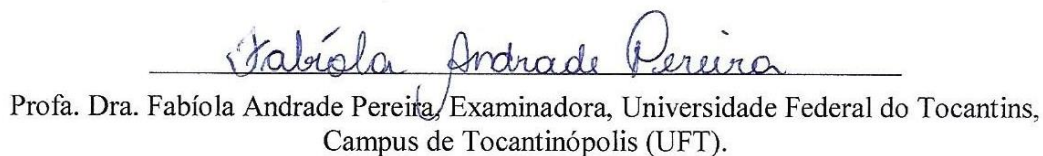 Fabíola Andrade Pereira
Profa. Dra. Fabíola Andrade Pereira, Examinadora, Universidade Federal do Tocantins,
Campus de Tocantinópolis (UFT).